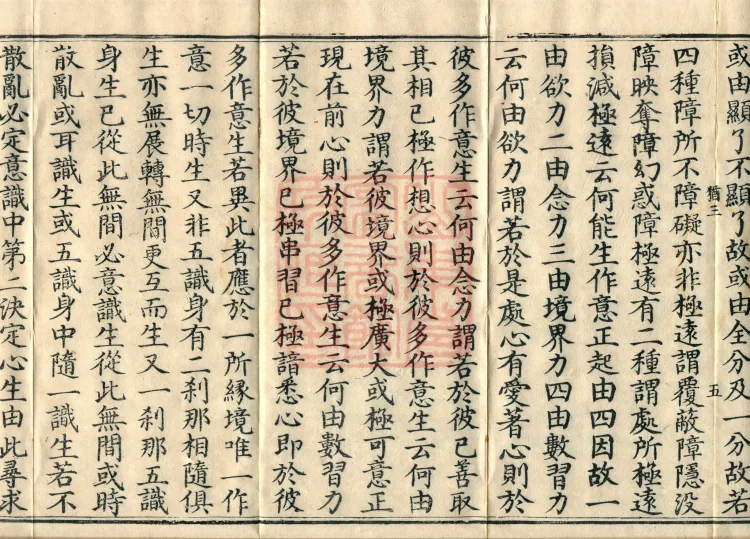 或由顯了不顯了故或由全分及一分故若
四種障所不障礙亦非極遠謂覆蔽障隱没
猶三
五
障映奪障幻惑障極遠有二種謂處所極遠
損減極遠云何能生作意正起由四因故一
由欲力二由念力三由境界力四由數習力
云何由欲力謂若於是處心有愛著心則於
彼多作意生云何由念力謂若於彼已善取
其相已極作想心則於彼多作意生云何由
境界力謂若彼境界或極廣大或極可意正
現在前心則於彼多作意生云何由數習力
若於彼境界已極串習已極諳悉心即於彼
多作意生若異此者應於一所緣境唯一作
意一切時生又非五識身有二刹那相隨俱
生亦無展轉無間更互而生又一刹那五識
身生已從此無間必意識生從此無間或時
散亂或耳識生或五識身中隨一識生若不
散亂必定意識中第二決定心生由此尋求